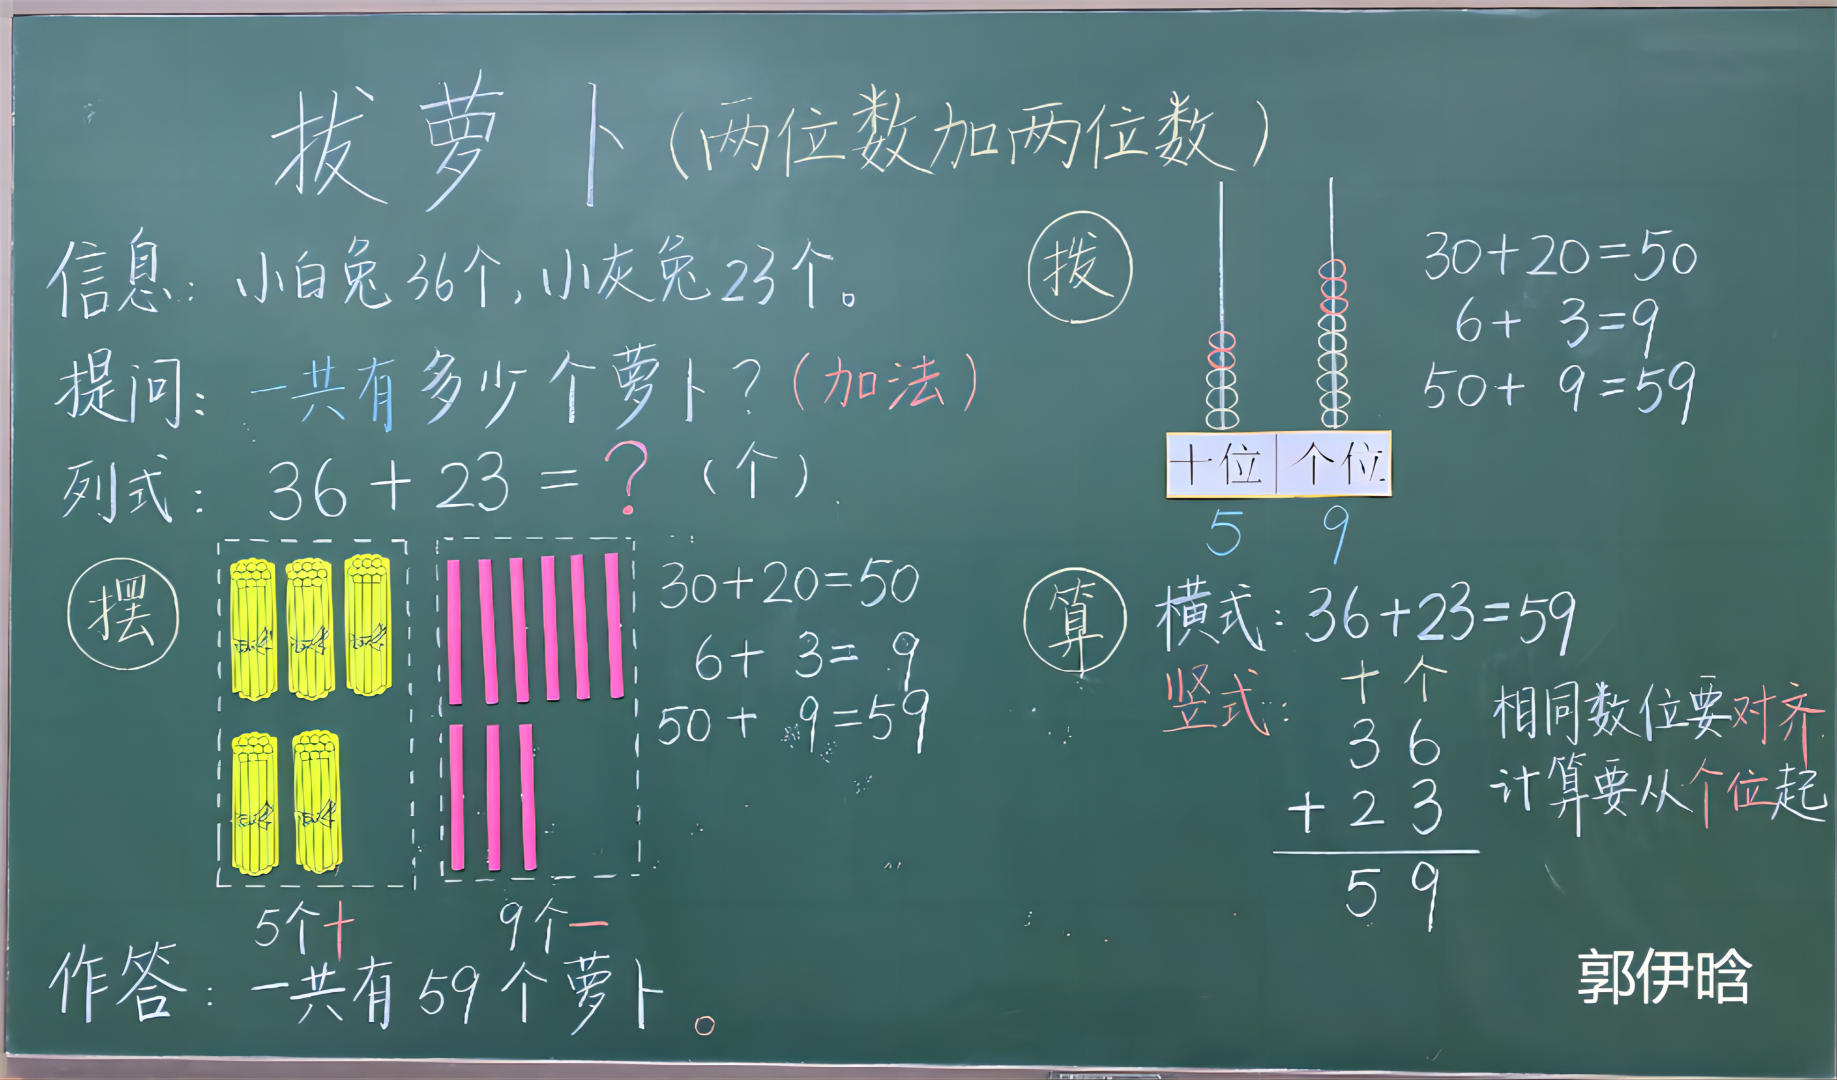 拔萝卜(两位数加两位数)
信息:小白兔36个,小灰兔23个。
提问:一共有多少个萝卜?(加法)
列式:36+23=?(个)
摆
30+20=50
6+3=9
50+9=59
5个十
9个一
作答:一共有59个萝卜。
拨
十位 个位
5 9
30+20=50
6+3=9
50+9=59
算
横式:36+23=59
竖式:
十个
36
+23
59
相同数位要对齐
计算要从个位起
郭伊晗